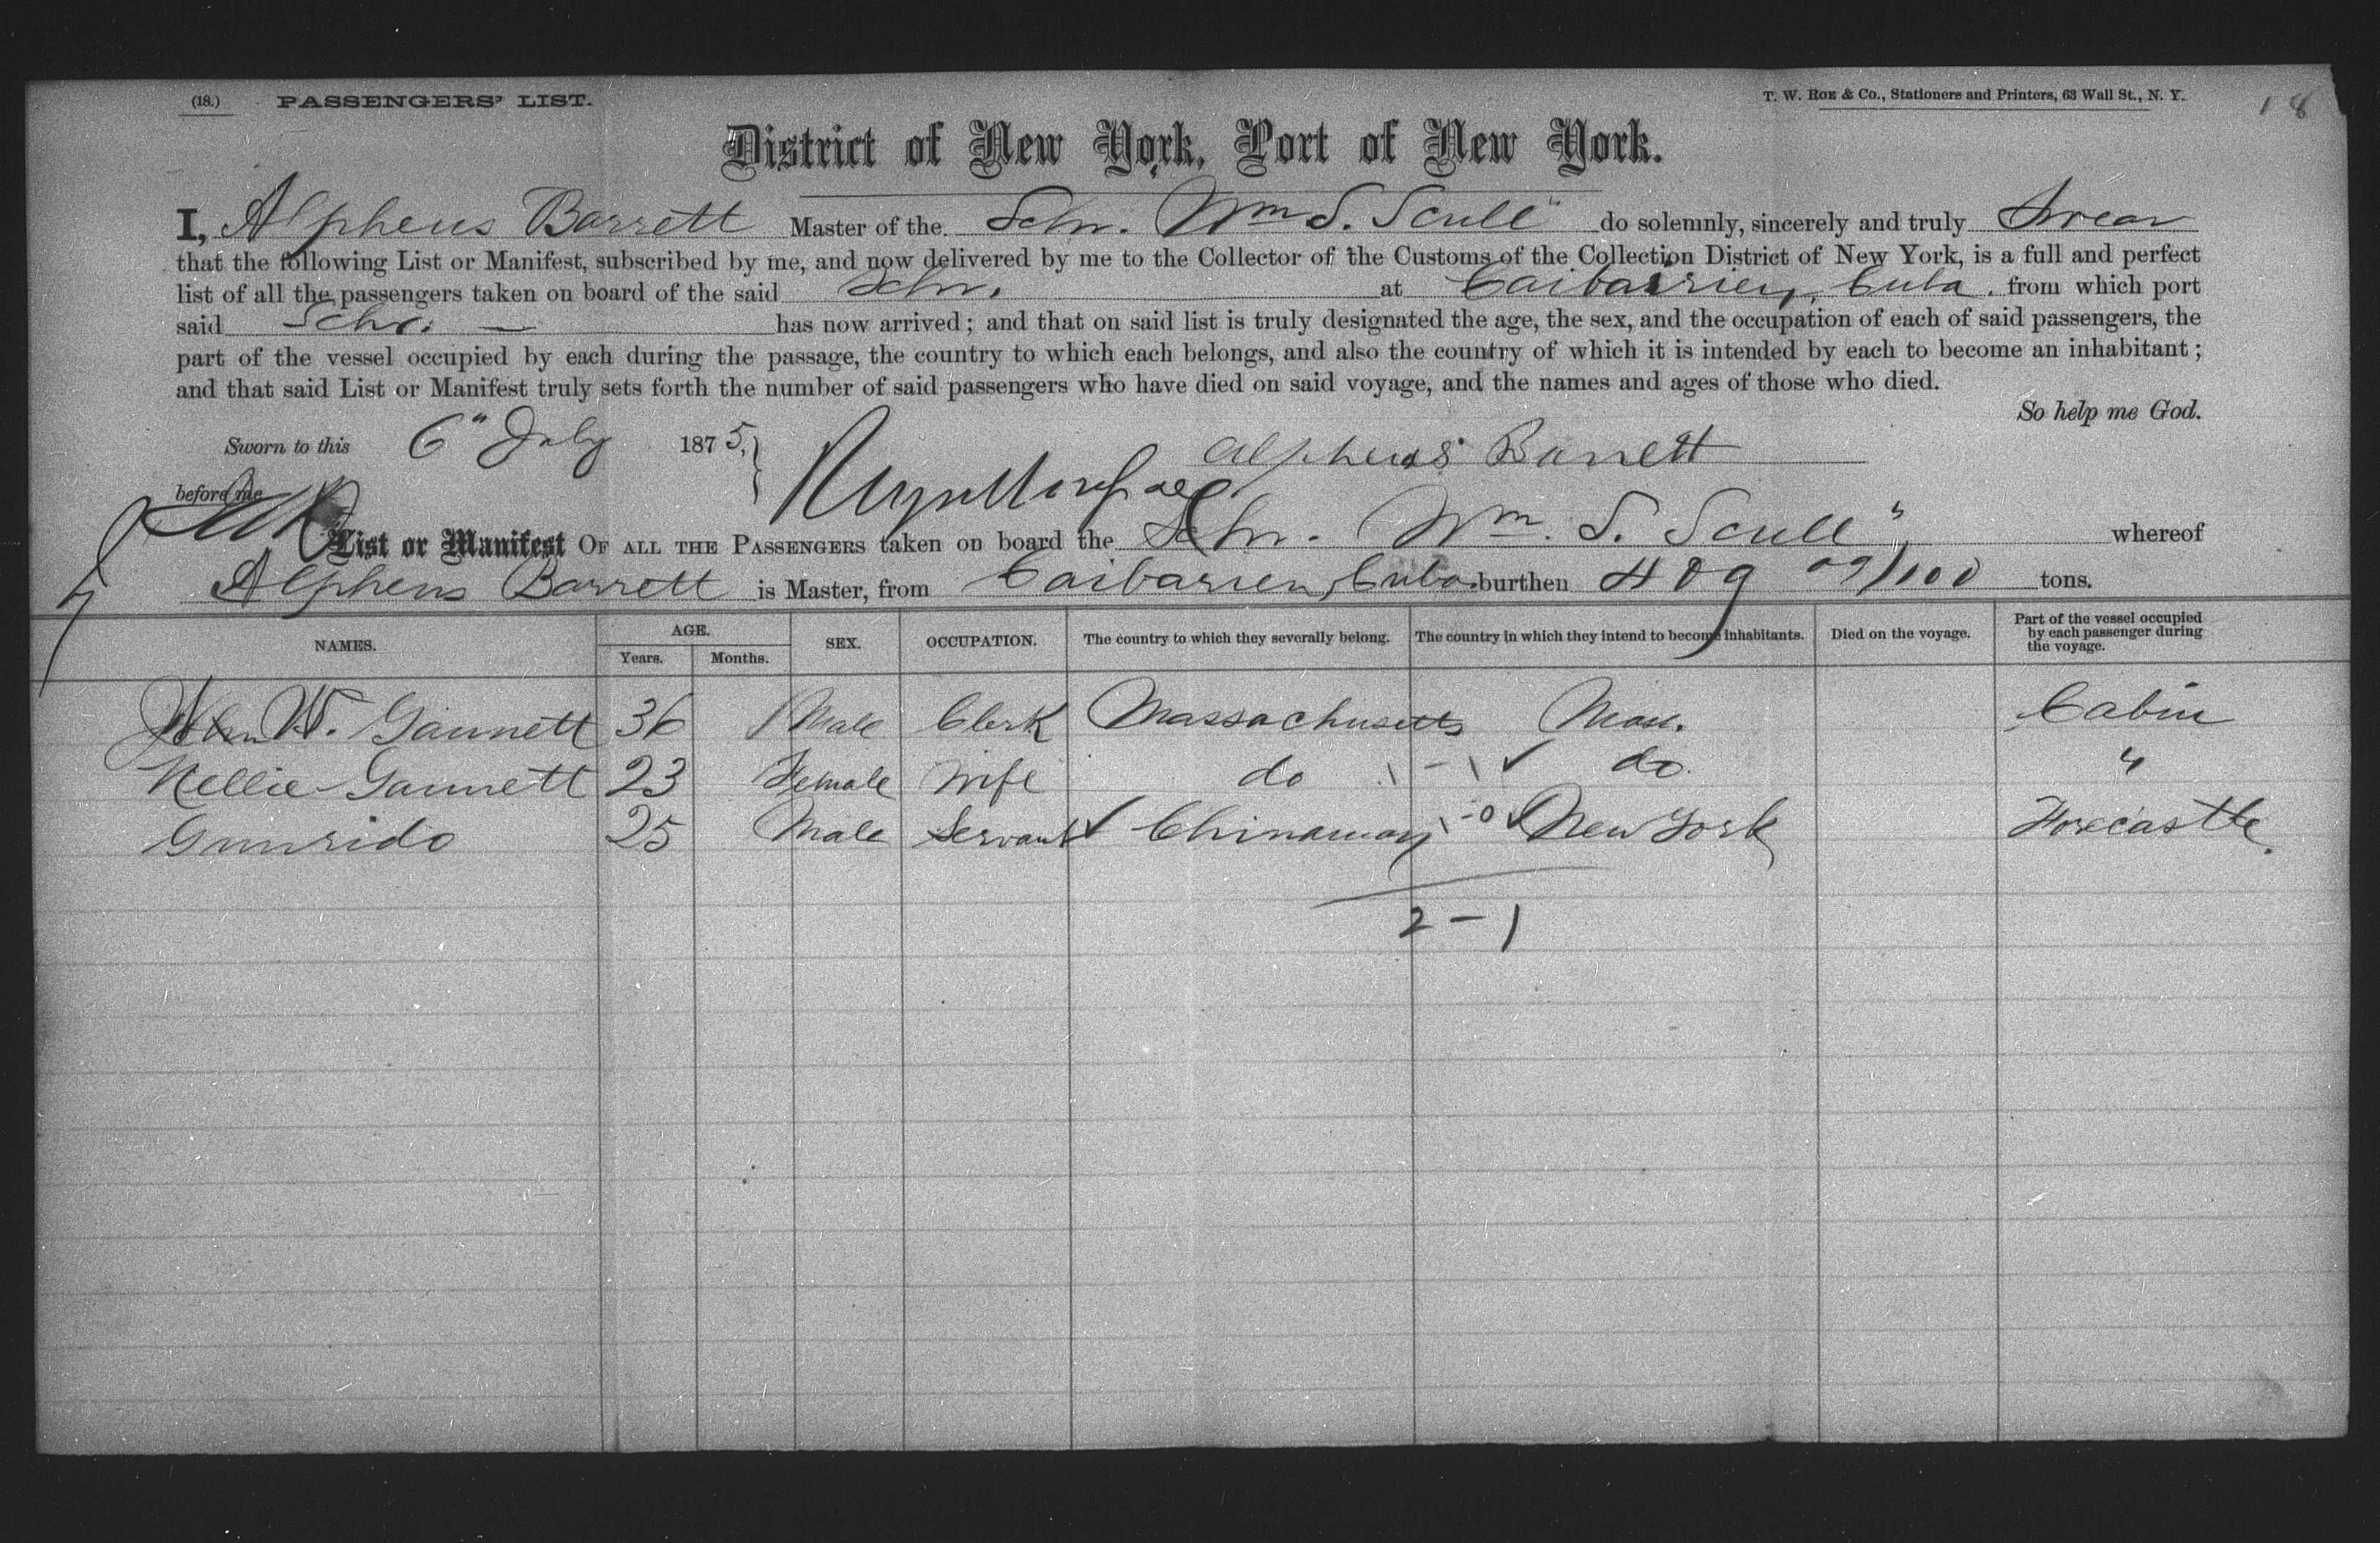 (18.) PASSENGERS' LIST. T. W. Roe & Co., Stationers and Printers, 63 Wall St., N. Y. 18
District of New York, Port of New York.
I, Alpheus Barrett Master of the Schr. Wm S. Scull" do solemnly, sincerely and truly Swear
that the following List or Manifest, subscribed by me, and now delivered by me to the Collector of the Customs of the Collection District of New York, is a full and perfect
list of all the passengers taken on board of the said Schr. at Caibarrien, Cuba. from which port
said Schr. — has now arrived; and that on said list is truly designated the age, the sex, and the occupation of each of said passengers, the
part of the vessel occupied by each during the passage, the country to which each belongs, and also the country of which it is intended by each to become an inhabitant;
and that said List or Manifest truly sets forth the number of said passengers who have died on said voyage, and the names and ages of those who died.
So help me God.
Sworn to this 6" July 1875, Alpheus Barrett
before me
List or Manifest OF ALL THE PASSENGERS taken on board the Schr. Wm. S. Scull" whereof
Alpheus Barrett is Master, from Caibarien, Cuba. burthen 409 09/100 tons.
NAMES. AGE. Years. Months. SEX. OCCUPATION. The country to which they severally belong. The country in which they intend to become inhabitants. Died on the voyage. Part of the vessel occupied by each passenger during the voyage.
John W. Gannett 36 Male Clerk Massachusetts Mass. Cabin
Nellie Gannett 23 Female Wife do \ - \ ✓ do. "
25 Male Servant ✓ Chinaman \ -0 ✓ New York Forecastle.
2 - 1